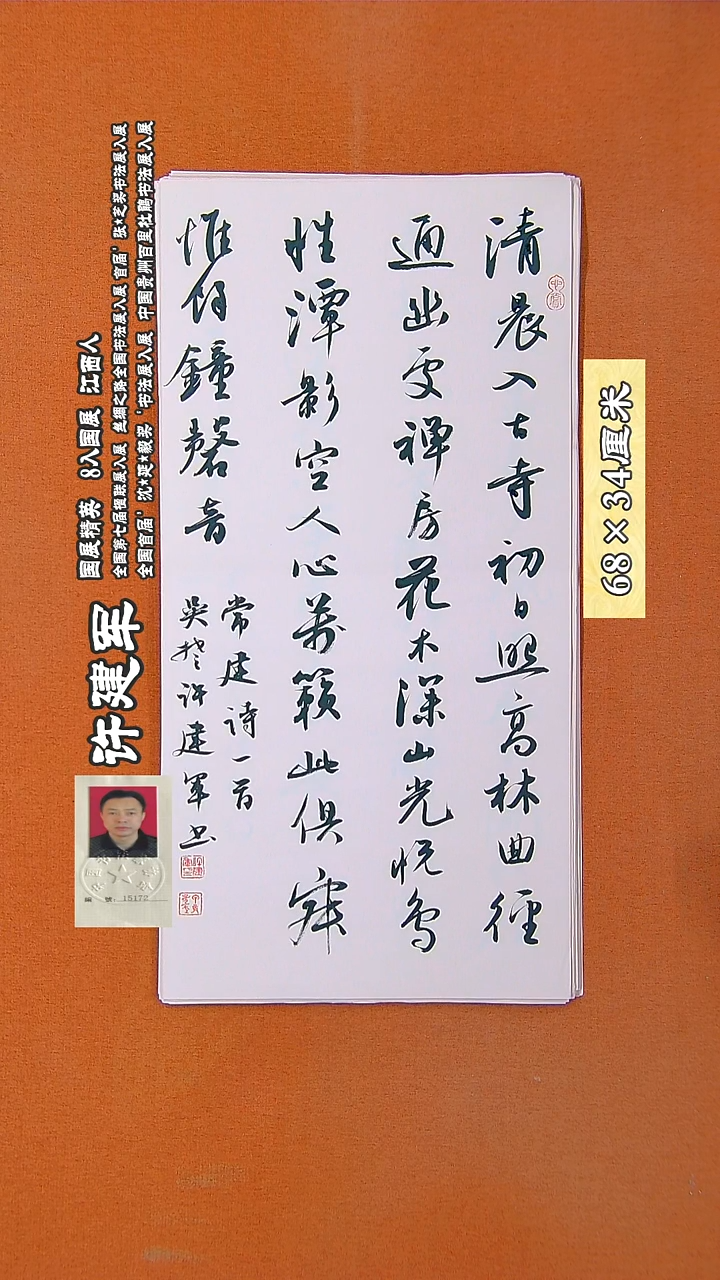 清晨入古寺初日照高林曲徑
通幽處禪房花木深山光悦鳥
性潭影空人心萬籟此俱寂
惟鐘磬音
常建詩一首
吴楚許建軍书
国展精英 8入国展 江西人
全国第七届楹联展入展 丝绸之路全国书法展入展 首届'张*芝奖书法展入展
全国首届'沈*延*毅奖'书法展入展 中国贵州百里杜鹃书法展入展
许建军
編號:15172
68×34厘米